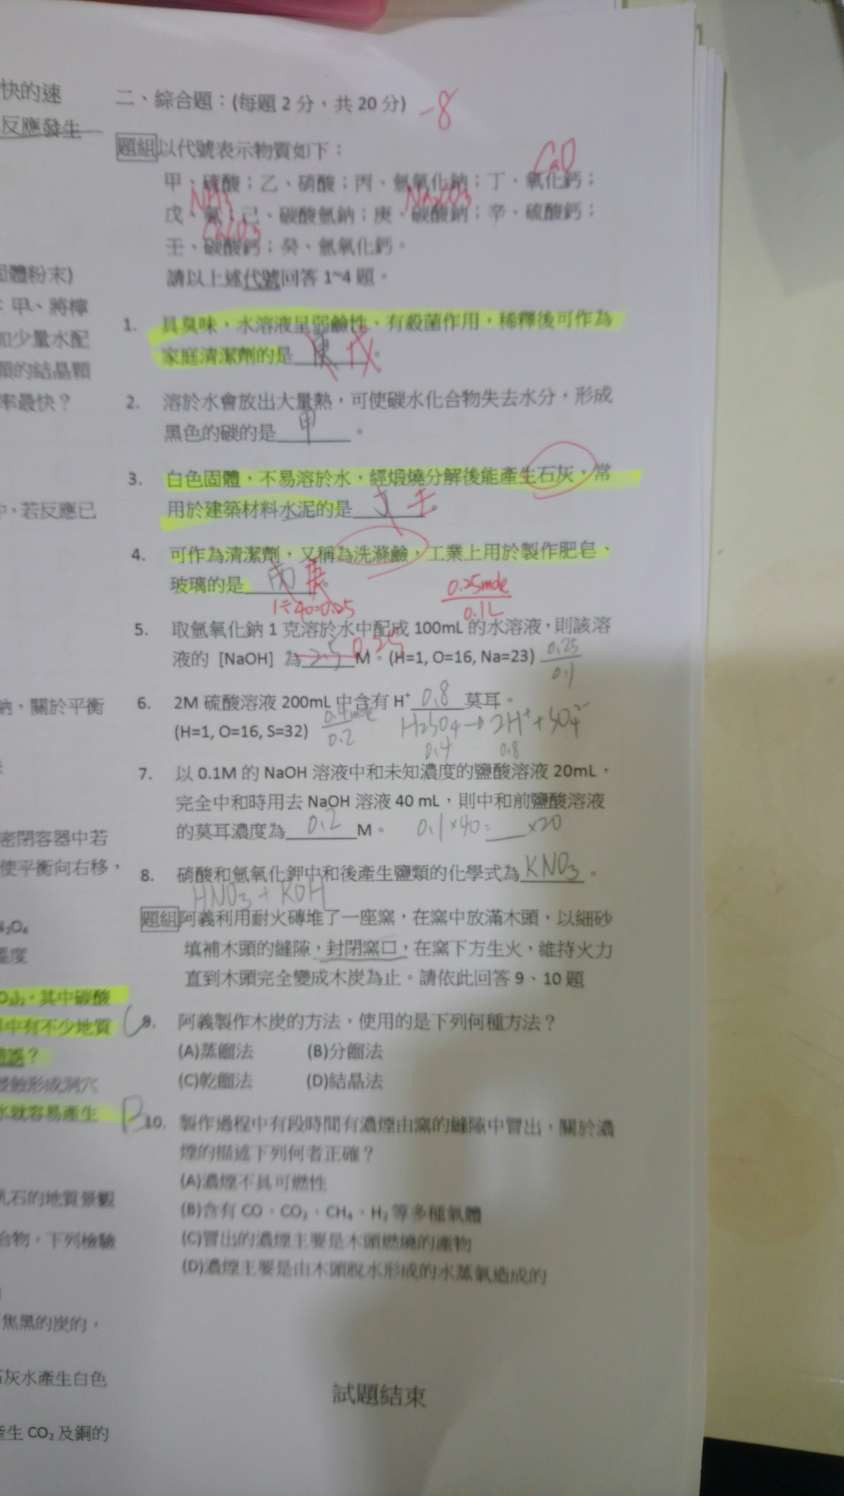 快的速
反應發生
固體粉末)
：甲、將檸
加少量水配
顆的結晶顆
率最快？
中，若反應已
鈉，關於平衡
密閉容器中若
使平衡向右移，
溫度
其中碳酸
中有不少地質
錯誤？
侵蝕形成洞穴
水就容易產生
乳石的地質景觀
合物，下列檢驗
焦黑的炭的，
石灰水產生白色
產生 CO₂ 及銅的
二、綜合題：(每題 2 分，共 20 分) -8
題組 以代號表示物質如下：
CaO
甲、硫酸；乙、硝酸；丙、氫氧化鈉；丁、氧化鈣；
NH3 Na2CO3
戊、氨；己、碳酸氫鈉；庚、碳酸鈉；辛、硫酸鈣；
CaCO3
壬、碳酸鈣；癸、氫氧化鈣。
請以上述代號回答 1~4 題。
1. 具臭味，水溶液呈弱鹼性、有殺菌作用，稀釋後可作為
家庭清潔劑的是 庚 戊。
2. 溶於水會放出大量熱，可使碳水化合物失去水分，形成
黑色的碳的是 甲 。
3. 白色固體，不易溶於水，經煅燒分解後能產生石灰，常
用於建築材料水泥的是 壬。
4. 可作為清潔劑，又稱為洗滌鹼，工業上用於製作肥皂、
玻璃的是 丙 庚。
1÷40=0.025 0.25mole
0.1L
5. 取氫氧化鈉 1 克溶於水中配成 100mL 的水溶液，則該溶
液的 [NaOH] 為 2.5 0.25 M。(H=1, O=16, Na=23) 0.25
0.1
6. 2M 硫酸溶液 200mL 中含有 H⁺ 0.8 莫耳。
(H=1, O=16, S=32) 0.4mole H2SO4→2H⁺+SO4²⁻
0.2 0.4 0.8
7. 以 0.1M 的 NaOH 溶液中和未知濃度的鹽酸溶液 20mL，
完全中和時用去 NaOH 溶液 40 mL，則中和前鹽酸溶液
的莫耳濃度為 0.2 M。 0.1×40=__×20
8. 硝酸和氫氧化鉀中和後產生鹽類的化學式為 KNO3 。
HNO3 + KOH
題組 阿義利用耐火磚堆了一座窯，在窯中放滿木頭，以細砂
填補木頭的縫隙，封閉窯口，在窯下方生火，維持火力
直到木頭完全變成木炭為止。請依此回答 9、10 題
C 9. 阿義製作木炭的方法，使用的是下列何種方法？
(A)蒸餾法 (B)分餾法
(C)乾餾法 (D)結晶法
B 10. 製作過程中有段時間有濃煙由窯的縫隙中冒出，關於濃
煙的描述下列何者正確？
(A)濃煙不具可燃性
(B)含有 CO、CO₂、CH₄、H₂ 等多種氣體
(C)冒出的濃煙主要是木頭燃燒的產物
(D)濃煙主要是由木頭脫水形成的水蒸氣造成的
試題結束